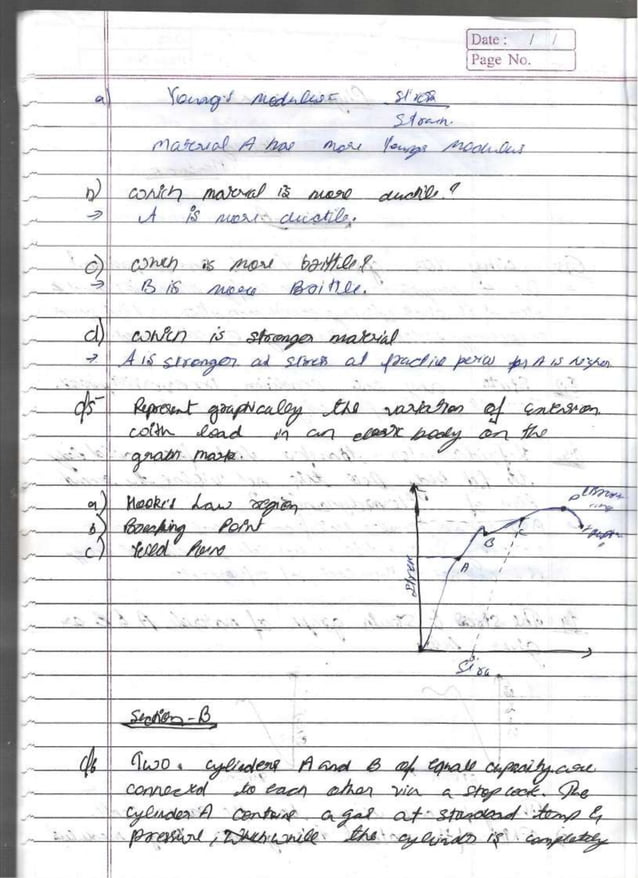 Date : / /
Page No.
a) Young's modulus = Stress
Strain
Material A has more Youngs Modulus
b) which material is more ductile?
→ A is more ductile.
c) which is more brittle?
→ B is more Brittle.
d) which is stronger material
→ A is stronger as stress at for A is higher
Q5 Represent graphically the variation of extension
with load in an elastic body on the
graph mark.
a) Hooke's Law region
b) Breaking Point
c) Yield Point
Stress
A
B
C
D
Section - B
Q6 Two cylinders A and B of equal capacity are
connected to each other via a stop cock. The
cylinder A contains a gas at standard temp &
pressure, while the cylinder is completely